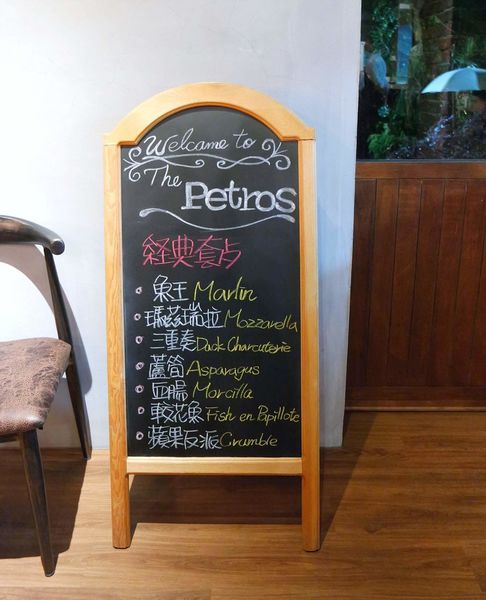 Welcome to
The Petros
経典套点
魚王 Marlin
瑪茲瑞拉 Mozzarella
三重奏 Duck Charcuterie
蘆筍 Asparagus
血腸 Morcilla
較花魚 Fish en Papillote
蘋果反派 Crumble